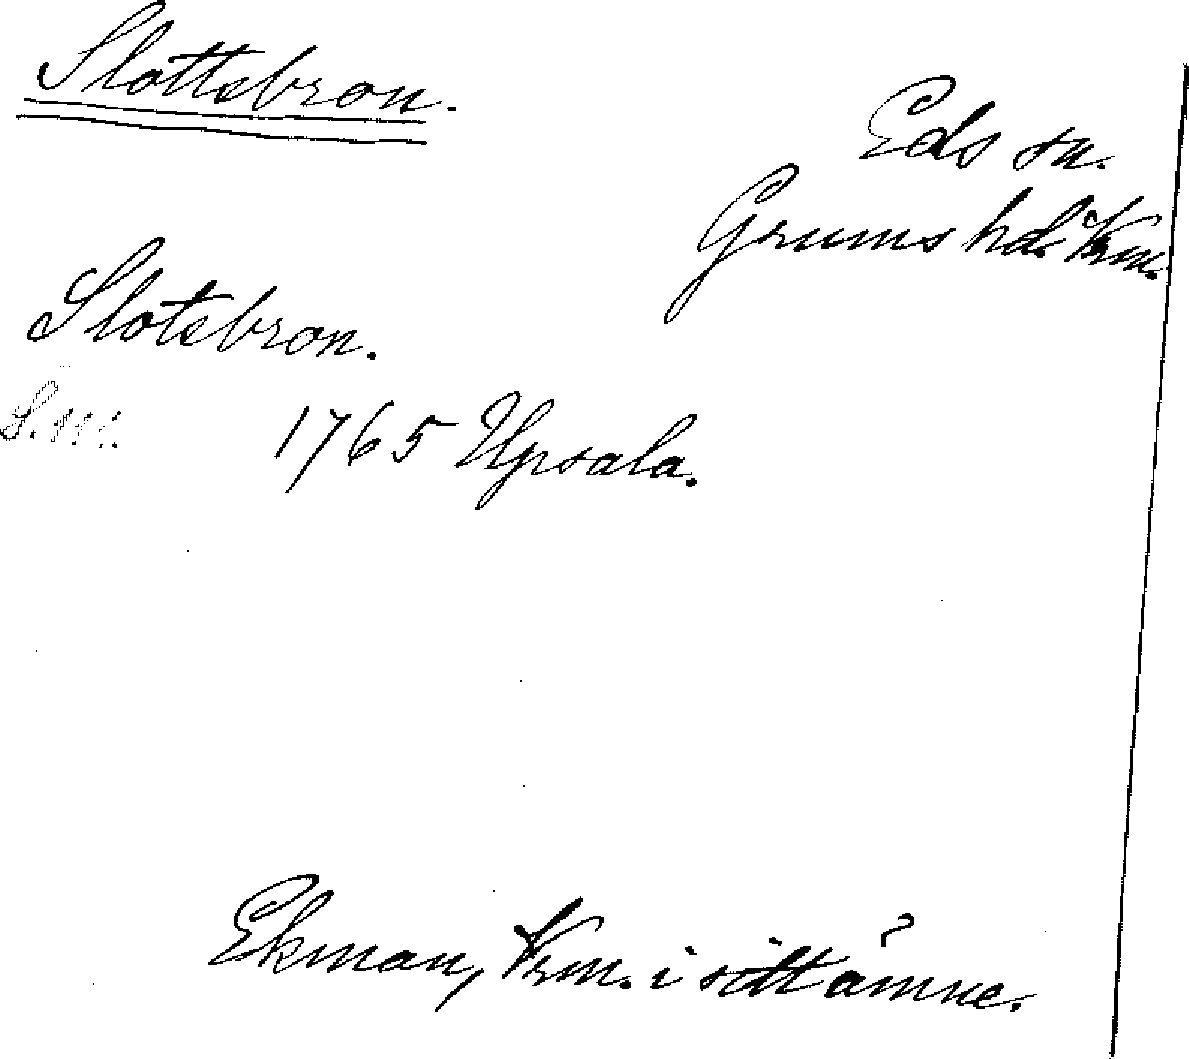 Slottsbron.
Eds sn.
Grums hd. Vrm.
Slotsbron.
S. m.
1765 Upsala.
Ekman, Vrm. i sitt ämne.